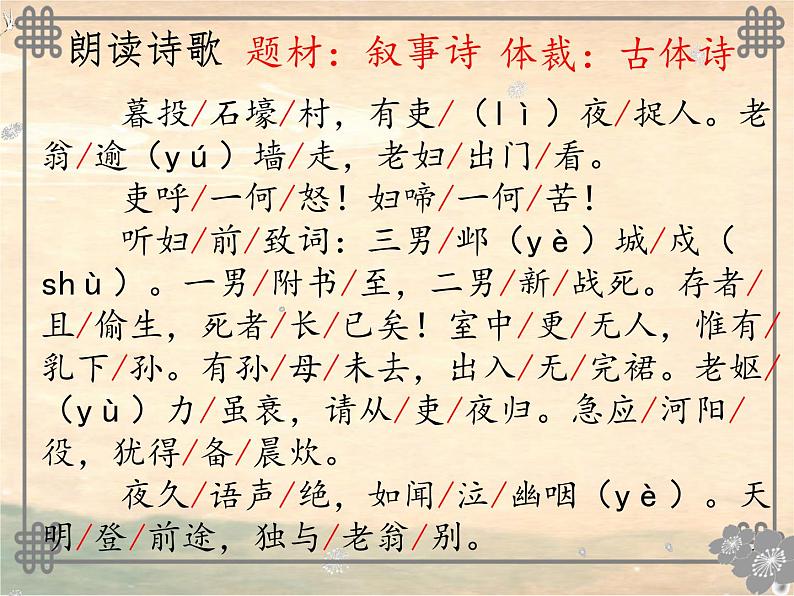 朗读诗歌 题材：叙事诗 体裁：古体诗
暮投/石壕/村，有吏/（lì）夜/捉人。老
翁/逾（yú）墙/走，老妇/出门/看。
吏呼/一何/怒！妇啼/一何/苦！
听妇/前/致词：三男/邺（yè）城/戍（
shù）。一男/附书/至，二男/新/战死。存者/
且/偷生，死者/长/已矣！室中/更/无人，惟有/
乳下/孙。有孙/母/未去，出入/无/完裙。老妪/
（yù）力/虽衰，请从/吏/夜归。急应/河阳/
役，犹得/备/晨炊。
夜久/语声/绝，如闻/泣/幽咽（yè）。天
明/登/前途，独与/老翁/别。